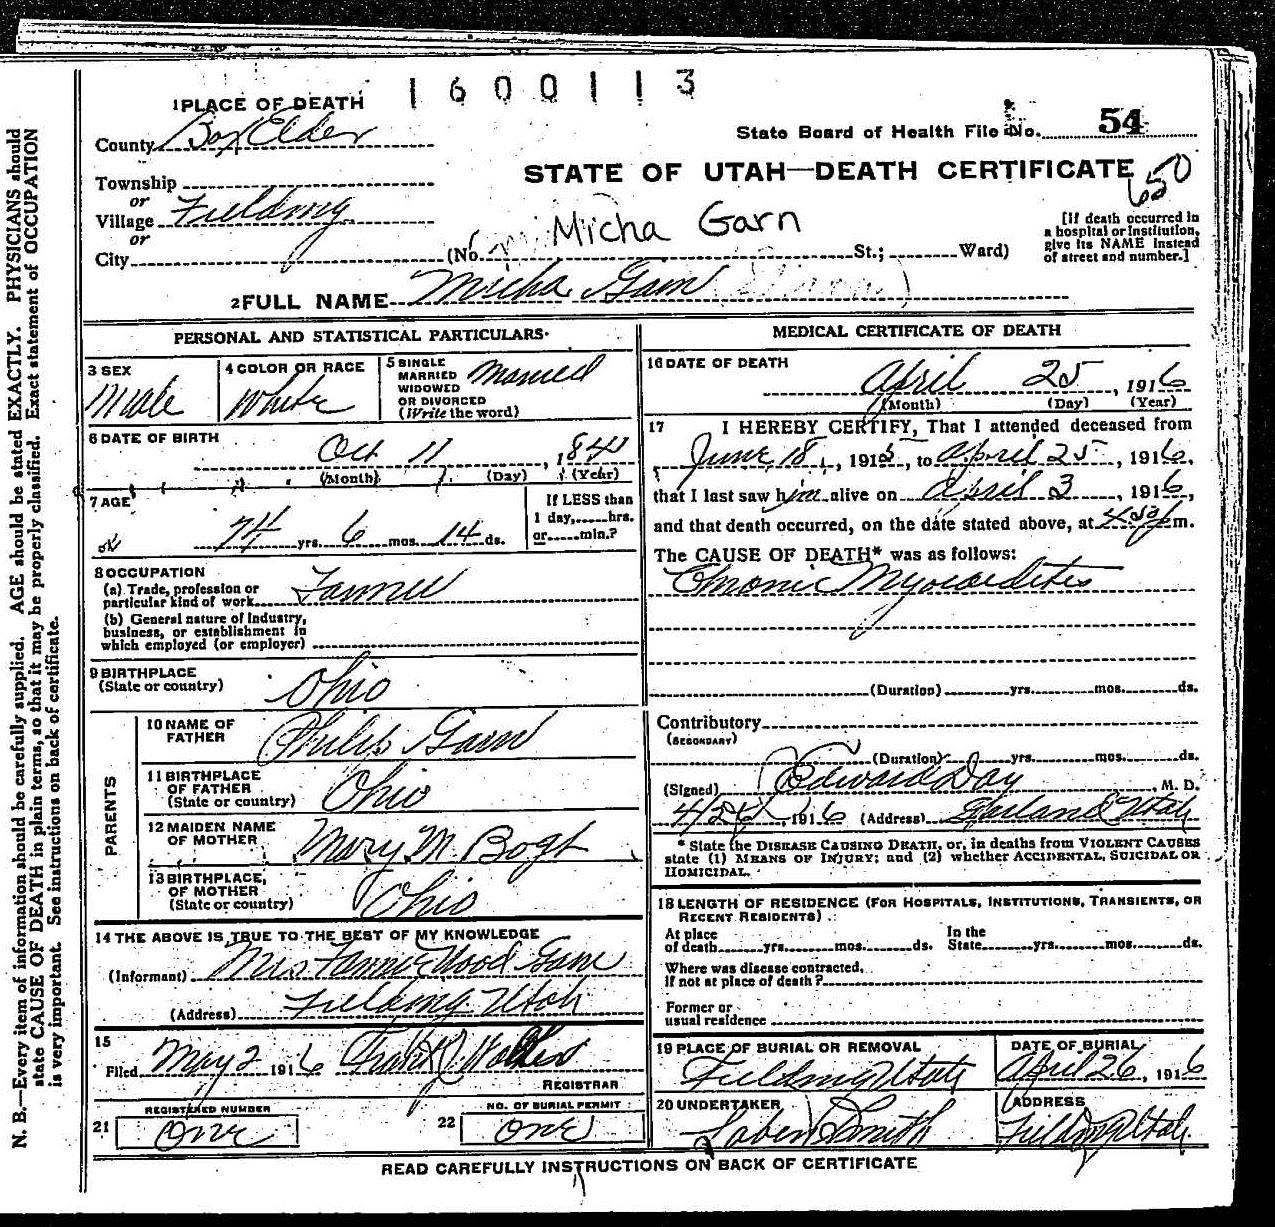 1600113
1 PLACE OF DEATH
County Box Elder
State Board of Health File No. 54
Township
STATE OF UTAH—DEATH CERTIFICATE
650
or
Village Fielding
Micha Garn
[If death occurred in
a hospital or institution,
give its NAME instead
of street and number.]
or
City (No. St.; Ward)
2 FULL NAME Micha Garn
PERSONAL AND STATISTICAL PARTICULARS
3 SEX
Male
4 COLOR OR RACE
White
5 SINGLE
MARRIED
WIDOWED
OR DIVORCED
(Write the word)
Married
6 DATE OF BIRTH
Oct 11, 184
(Month) (Day) (Year)
7 AGE
74 yrs. 6 mos. 14 ds.
If LESS than
1 day, hrs.
or min.?
8 OCCUPATION
(a) Trade, profession or
particular kind of work Farmer
(b) General nature of industry,
business, or establishment in
which employed (or employer)
9 BIRTHPLACE
(State or country) Ohio
PARENTS
10 NAME OF
FATHER Philip Garn
11 BIRTHPLACE
OF FATHER
(State or country) Ohio
12 MAIDEN NAME
OF MOTHER Mary M. Bogt
13 BIRTHPLACE,
OF MOTHER
(State or country) Ohio
14 THE ABOVE IS TRUE TO THE BEST OF MY KNOWLEDGE
(Informant) Mrs Fannie Wood Garn
(Address) Fielding Utah
15
Filed May 2 1916
REGISTRAR
REGISTERED NUMBER
21 One
NO. OF BURIAL PERMIT
22 One
MEDICAL CERTIFICATE OF DEATH
16 DATE OF DEATH
April 25, 1916
(Month) (Day) (Year)
17 I HEREBY CERTIFY, That I attended deceased from
June 18, 1915, to April 25, 1916,
that I last saw him alive on April 3, 1916,
and that death occurred, on the date stated above, at m.
The CAUSE OF DEATH* was as follows:
Chronic Myocarditis
(Duration) yrs. mos. ds.
Contributory
(SECONDARY)
(Duration) yrs. mos. ds.
(Signed) Edward Day, M. D.
4/26, 1916 (Address) Garland Utah
* State the DISEASE CAUSING DEATH, or, in deaths from VIOLENT CAUSES
state (1) MEANS OF INJURY; and (2) whether ACCIDENTAL, SUICIDAL OR
HOMICIDAL.
18 LENGTH OF RESIDENCE (FOR HOSPITALS, INSTITUTIONS, TRANSIENTS, OR
RECENT RESIDENTS)
At place
of death yrs. mos. ds.
In the
State yrs. mos. ds.
Where was disease contracted,
if not at place of death?
Former or
usual residence
19 PLACE OF BURIAL OR REMOVAL
Fielding Utah
DATE OF BURIAL
April 26, 1916
20 UNDERTAKER
Smith
ADDRESS
Fielding Utah
READ CAREFULLY INSTRUCTIONS ON BACK OF CERTIFICATE
N. B.—Every item of information should be carefully supplied. AGE should be stated EXACTLY. PHYSICIANS should
state CAUSE OF DEATH in plain terms, so that it may be properly classified. Exact statement of OCCUPATION
is very important. See instructions on back of certificate.